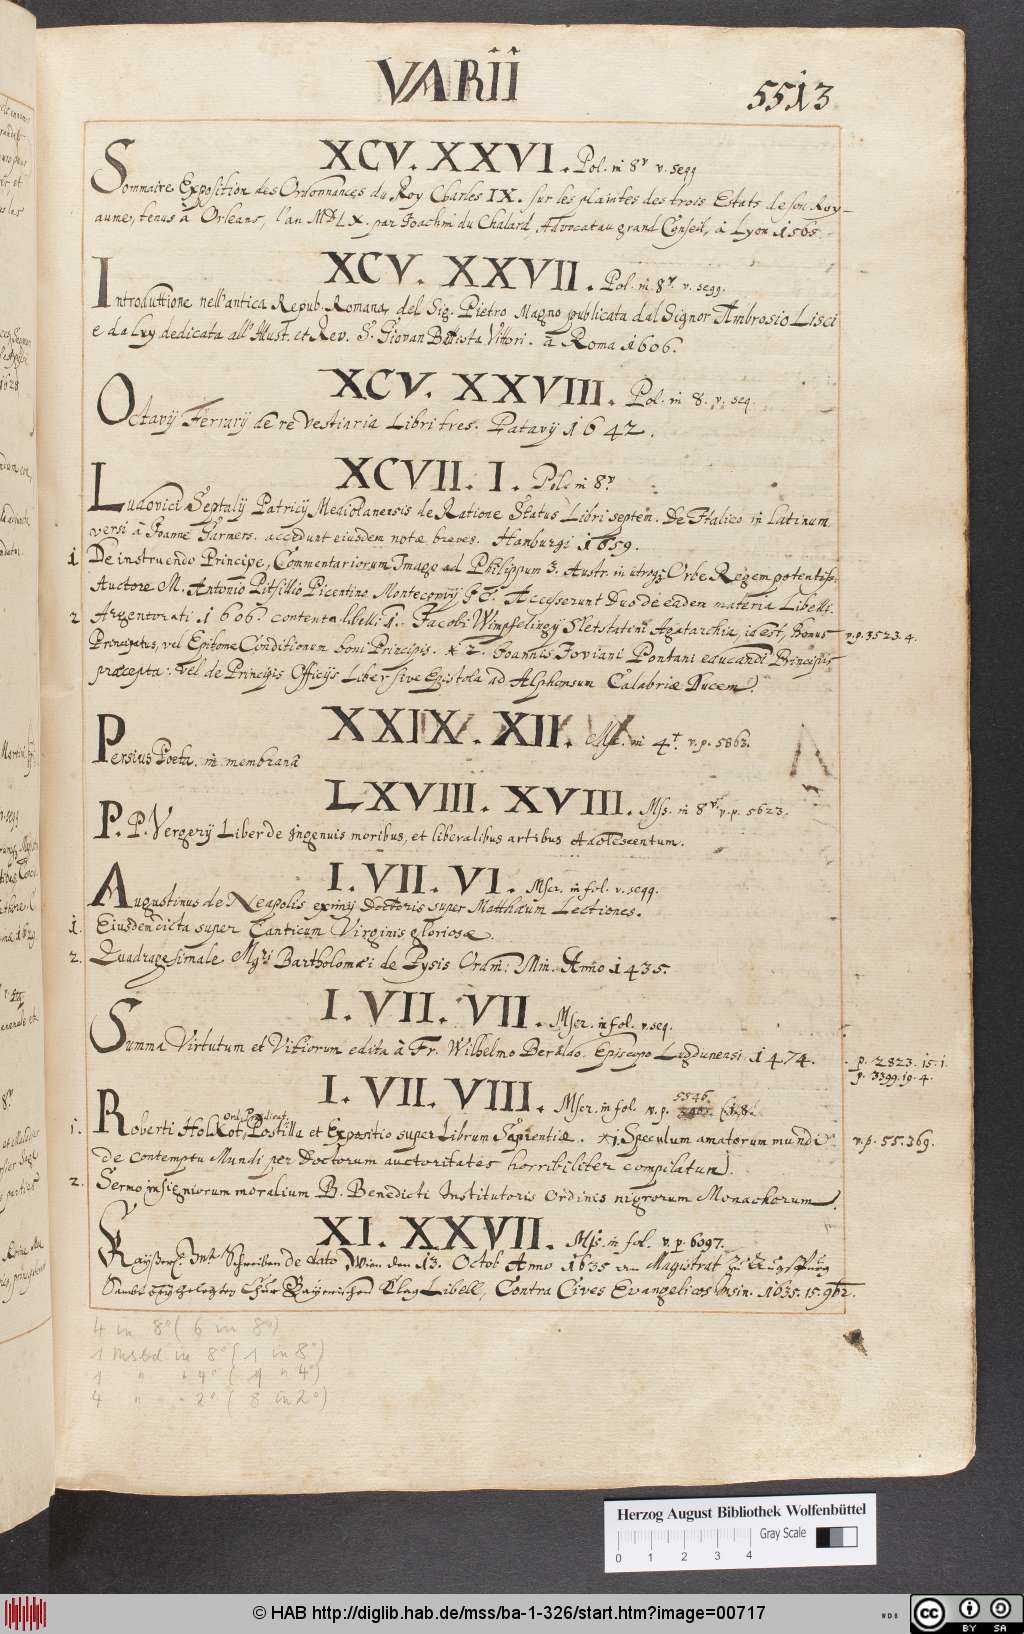 VARII
5513
XCV. XXVI. Pol. in 8º v. seqq
Sommaire Exposition des Ordonnances du Roy Charles IX. sur les plaintes des trois Estats de son Roy-
aume, tenus à Orleans, l'an MDLX. par Joachim du Chalard, Advocat au grand Conseil, à Lyon 1565.
XCV. XXVII. Pol. in 8º. v. seqq.
Introduttione nell'antica Repub. Romana, del Sig. Pietro Magno publicata dal Signor Ambrosio Lisci
e da luy dedicata all' Illust. et Rev. S. Giovan Battista Vittori. à Roma 1606.
XCV. XXVIII. Pol. in 8. v. seq.
Octavij Ferrarij de re Vestiaria Libri tres. Patavij 1642.
XCVII. I. Pol. in 8º
Ludovici Septalij Patricij Mediolanensis de Ratione Status Libri septem. De Italico in Latinum
versi à Joanne Garmers. accedunt eiusdem notæ breves. Hamburgi 1659.
1 De instruendo Principe, Commentariorum Imago ad Philippum 3. Austr. in utroq; Orbe Regem potentiss.
Auctore M. Antonio Pitsillio Picentino Montecopiij Accesserunt Duo de eadem materia Libelli.
2 Argentorati. 1606. contenta libelli 1. Jacobi Wimpfelingij Sletstatini Agatarchia, id est, Bonus v. p. 3523. 4.
Principatus, vel Epitome Conditionum boni Principis. * 2. Joannis Joviani Pontani educandi Principis
præcepta: vel de Principis Officijs Liber sive Epistola ad Alphonsum Calabriæ Ducem.
XXIX. XII. Mss. in 4t. v. p. 5863.
Persius Poeta. in membrana
LXVIII. XVIII. Mss. in 8º v. p. 5623.
P. P. Vergerij Liber de Ingenuis moribus, et liberalibus artibus Adolescentum.
I. VII. VI. Mscr. in fol. v. seqq.
Augustinus de Neapolis eximij Doctoris super Matthæum Lectiones.
1. Eiusdem dicta super Canticum Virginis gloriosæ.
2. Quadragesimale Mgri Bartholomæi de Pysis Ordin: Min. Anno 1435.
I. VII. VII. Mscr. in fol. v. seq.
Summa Virtutum et Vitiorum edita à Fr. Wilhelmo Beraldo. Episcopo Lugdunensi. 1474.
p. 2823. 15. 1.
p. 3399. 19. 4.
I. VII. VIII. Mscr. in fol v. p. 5546. (1. 8.
1. Roberti Holkot, Ord. Prædicat. Postilla et Expositio super Librum Sapientiæ. * 1. Speculum amatorum mundi v. p. 55. 369.
de contemptu Mundi per Doctorum auctoritates horribiliter compilatum.
2. Sermo insigniorum moralium B. Benedicti Institutoris Ordinis nigrorum Monachorum.
XI. XXVII. Mss. in fol. v. p. 6097.
Schreiben de dato, Wien den 13. Octob Anno 1635 an Magistrat zu Augspurg
Sambt beygelegten Chur Bayrischen Klag Libell, Contra Cives Evangelicos insin. 1635. 15. 9br.
4 in 8º (6 in 8º)
1 Msbd in 8º (1 in 8º)
1 " " 4º ( " 4º)
4 " " 2º (8 in 2º)
Herzog August Bibliothek Wolfenbüttel
Gray Scale
0 1 2 3 4
© HAB http://diglib.hab.de/mss/ba-1-326/start.htm?image=00717
WDB
cc BY SA